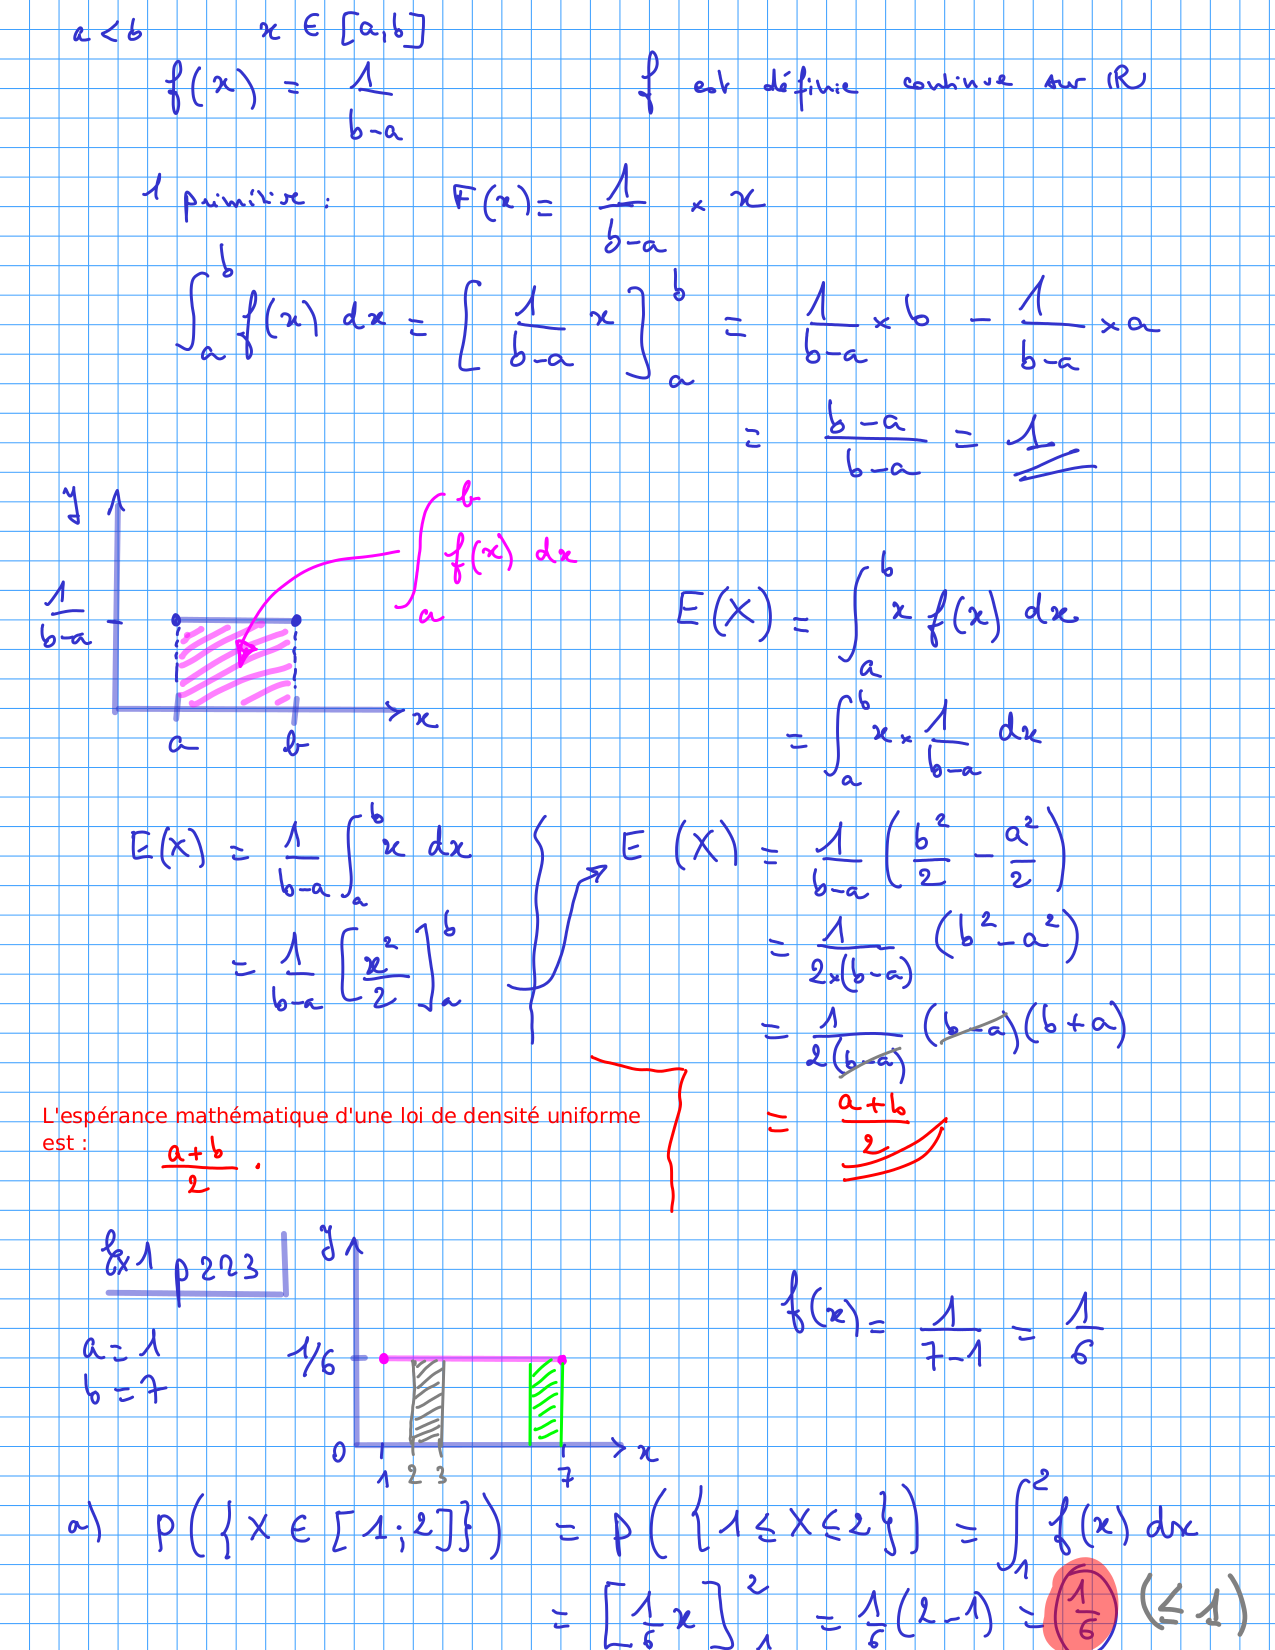 a < b    x ∈ [a,b]
f(x) = 1/(b-a)    f est définie continue sur ℝ
1 primitive :    F(x) = 1/(b-a) × x
∫_a^b f(x) dx = [1/(b-a) x]_a^b = 1/(b-a) × b - 1/(b-a) × a
= (b-a)/(b-a) = 1
y
1/(b-a)
a    b    x
∫_a^b f(x) dx
E(X) = ∫_a^b x f(x) dx
= ∫_a^b x × 1/(b-a) dx
E(X) = 1/(b-a) ∫_a^b x dx
= 1/(b-a) [x²/2]_a^b
E(X) = 1/(b-a) (b²/2 - a²/2)
= 1/(2×(b-a)) (b²-a²)
= 1/(2(b-a)) (b-a)(b+a)
= (a+b)/2
L'espérance mathématique d'une loi de densité uniforme
est :
(a+b)/2 .
Ex 1 p 223
a = 1
b = 7
y
1/6
0    1    2    3    7    x
f(x) = 1/(7-1) = 1/6
a) P({X ∈ [1;2]}) = P({1 ≤ X ≤ 2}) = ∫_1^2 f(x) dx
= [1/6 x]_1^2 = 1/6 (2-1) = 1/6 (≤ 1)